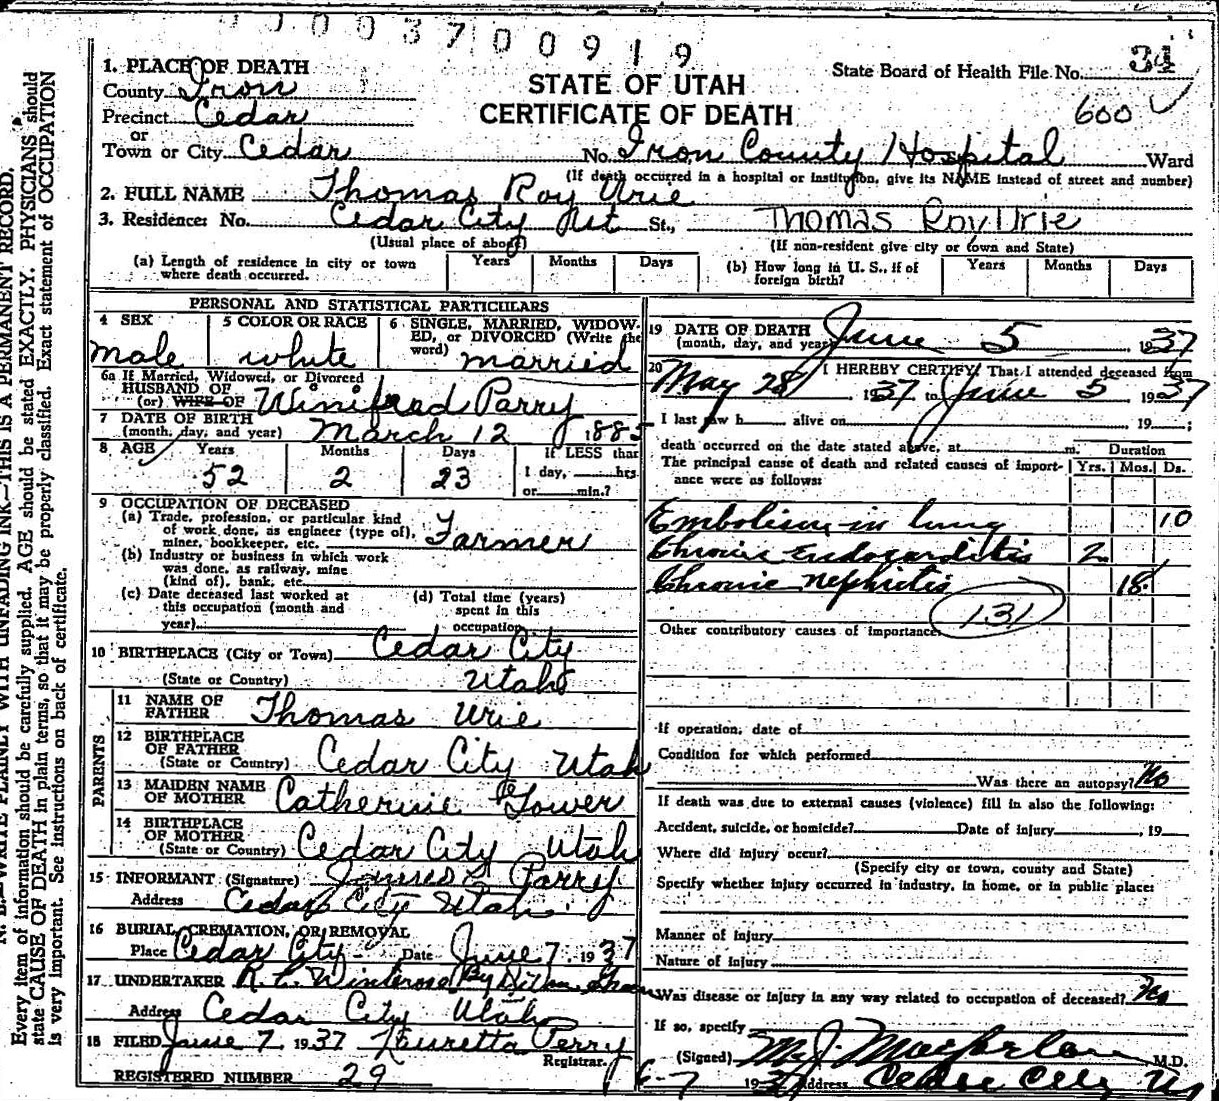 0003700919
1. PLACE OF DEATH
County Iron
Precinct Cedar
or
Town or City Cedar
STATE OF UTAH
CERTIFICATE OF DEATH
State Board of Health File No. 34
600
No. Iron County Hospital Ward
(If death occurred in a hospital or institution, give its NAME instead of street and number)
2. FULL NAME Thomas Roy Urie
3. Residence: No. Cedar City Ut St., Thomas Roy Urie
(Usual place of abode) (If non-resident give city or town and State)
(a) Length of residence in city or town where death occurred. Years Months Days
(b) How long in U. S., if of foreign birth? Years Months Days
PERSONAL AND STATISTICAL PARTICULARS
4 SEX male
5 COLOR OR RACE white
6 SINGLE, MARRIED, WIDOWED, or DIVORCED (Write the word) married
6a If Married, Widowed, or Divorced
HUSBAND OF
(or) WIFE OF Winifred Parry
7 DATE OF BIRTH
(month, day, and year) March 12 1885
8 AGE Years Months Days If LESS than
52 2 23 1 day, hrs
or min.?
9 OCCUPATION OF DECEASED
(a) Trade, profession, or particular kind
of work done, as engineer (type of),
miner, bookkeeper, etc. Farmer
(b) Industry or business in which work
was done, as railway, mine
(kind of), bank, etc.
(c) Date deceased last worked at
this occupation (month and
year)
(d) Total time (years)
spent in this
occupation
10 BIRTHPLACE (City or Town) Cedar City
(State or Country) Utah
PARENTS
11 NAME OF
FATHER Thomas Urie
12 BIRTHPLACE
OF FATHER
(State or Country) Cedar City Utah
13 MAIDEN NAME
OF MOTHER Catherine Gower
14 BIRTHPLACE
OF MOTHER
(State or Country) Cedar City Utah
15 INFORMANT (Signature) Parry
Address Cedar City Utah
16 BURIAL, CREMATION, OR REMOVAL
Place Cedar City Date June 7. 1937
17 UNDERTAKER By
Address Cedar City Utah
18 FILED June 7, 1937 Lauretta Perry
Registrar.
REGISTERED NUMBER 29
19 DATE OF DEATH
(month, day, and year) June 5, 1937
20 I HEREBY CERTIFY, That I attended deceased from
May 28 1937 to June 5, 1937
I last saw h alive on , 19 ;
death occurred on the date stated above, at m. Duration
The principal cause of death and related causes of importance were as follows: Yrs. Mos. Ds.
Embolism in lung 10
Chronic Endocarditis 2
Chronic nephritis 18
131
Other contributory causes of importance:
If operation, date of
Condition for which performed
Was there an autopsy? No
If death was due to external causes (violence) fill in also the following:
Accident, suicide, or homicide? Date of injury , 19
Where did injury occur?
(Specify city or town, county and State)
Specify whether injury occurred in industry, in home, or in public place:
Manner of Injury
Nature of Injury
Was disease or injury in any way related to occupation of deceased? No
If so, specify
(Signed) M. J. Macfarlane M.D.
6-7 1937 Address Cedar City Ut
N. B.—WRITE PLAINLY WITH UNFADING INK—THIS IS A PERMANENT RECORD.
Every item of information should be carefully supplied. AGE should be stated EXACTLY. PHYSICIANS should
state CAUSE OF DEATH in plain terms, so that it may be properly classified. Exact statement of OCCUPATION
is very important. See instructions on back of certificate.